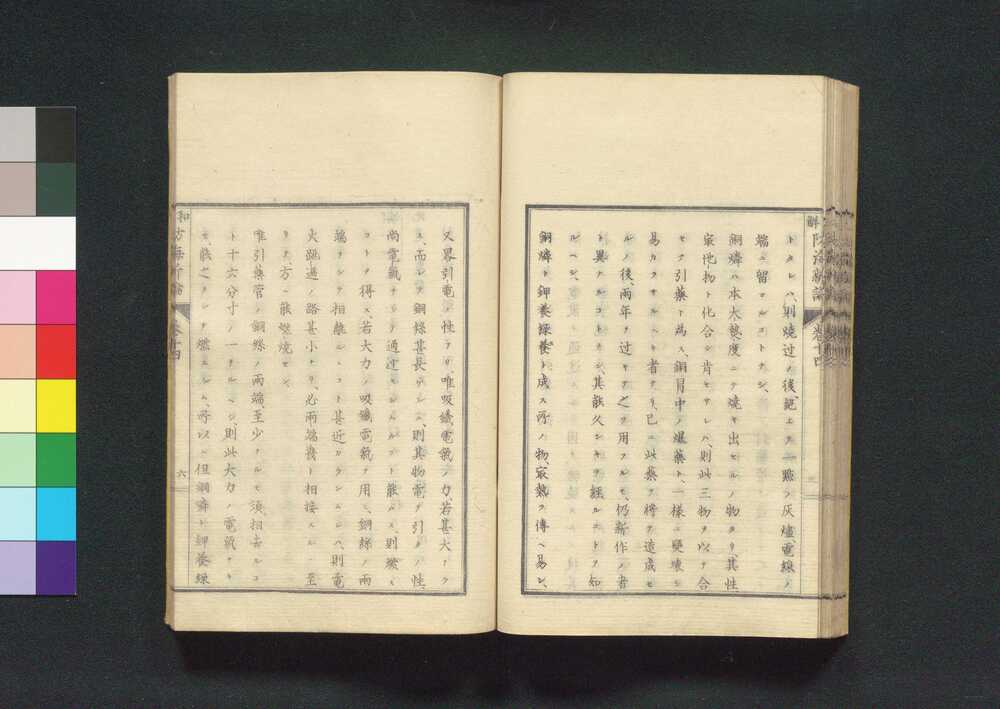 トタレハ、則燒过ノ後、絶エテ一點ノ灰燼、電線ノ
端ニ留マルコトナシ、
銅燐ハ本大熱度ニテ燒キ出セルノ物ナリ、其性
寂他物ト化合シ肯セサレハ、則此三物ヲ以テ合
セテ引藥ト為ス、銅冒中ノ爆藥ト、一様ニ變壊シ
易カラサルヘキ者ナリ、已ニ此藥ヲ將テ造成セ
ルノ後、兩年ヲ过キテ之ヲ用フルモ、仍新作ノ者
ト異ナルコトナシ、其能久シキヲ經ルコトヲ知
ルヘシ、
銅燐ト鉀養綠養ト成ス所ノ物、寂熱ヲ傳ヘ易シ、
防海新論 卷十四
又畧引電ノ性アリ、唯吸鐵電氣ノ力、若甚大ナラ
ス、而シテ銅條甚長ケレハ、則其物電ヲ引クノ性、
尚電氣ヲシテ通过セシムルコト能ハス、則燃ス
コトヲ得ス、若大力ノ吸鐵電氣ヲ用ヒ、銅線ノ兩
端ヲシテ相離ルヽコト甚近カラシムレハ、則電
火跳过ノ路甚小ナリ、必兩端幾ト相接スルニ至
リテ、方ニ能燃燒セン
唯引藥管ノ銅絲ノ兩端至少ナルモ須相去ルコ
ト十六分寸ノ一ナルヘシ、則此大力ノ電氣ナキ
モ、能之ヲシテ燃エシム、所以ハ但銅燐ト鉀養綠
六